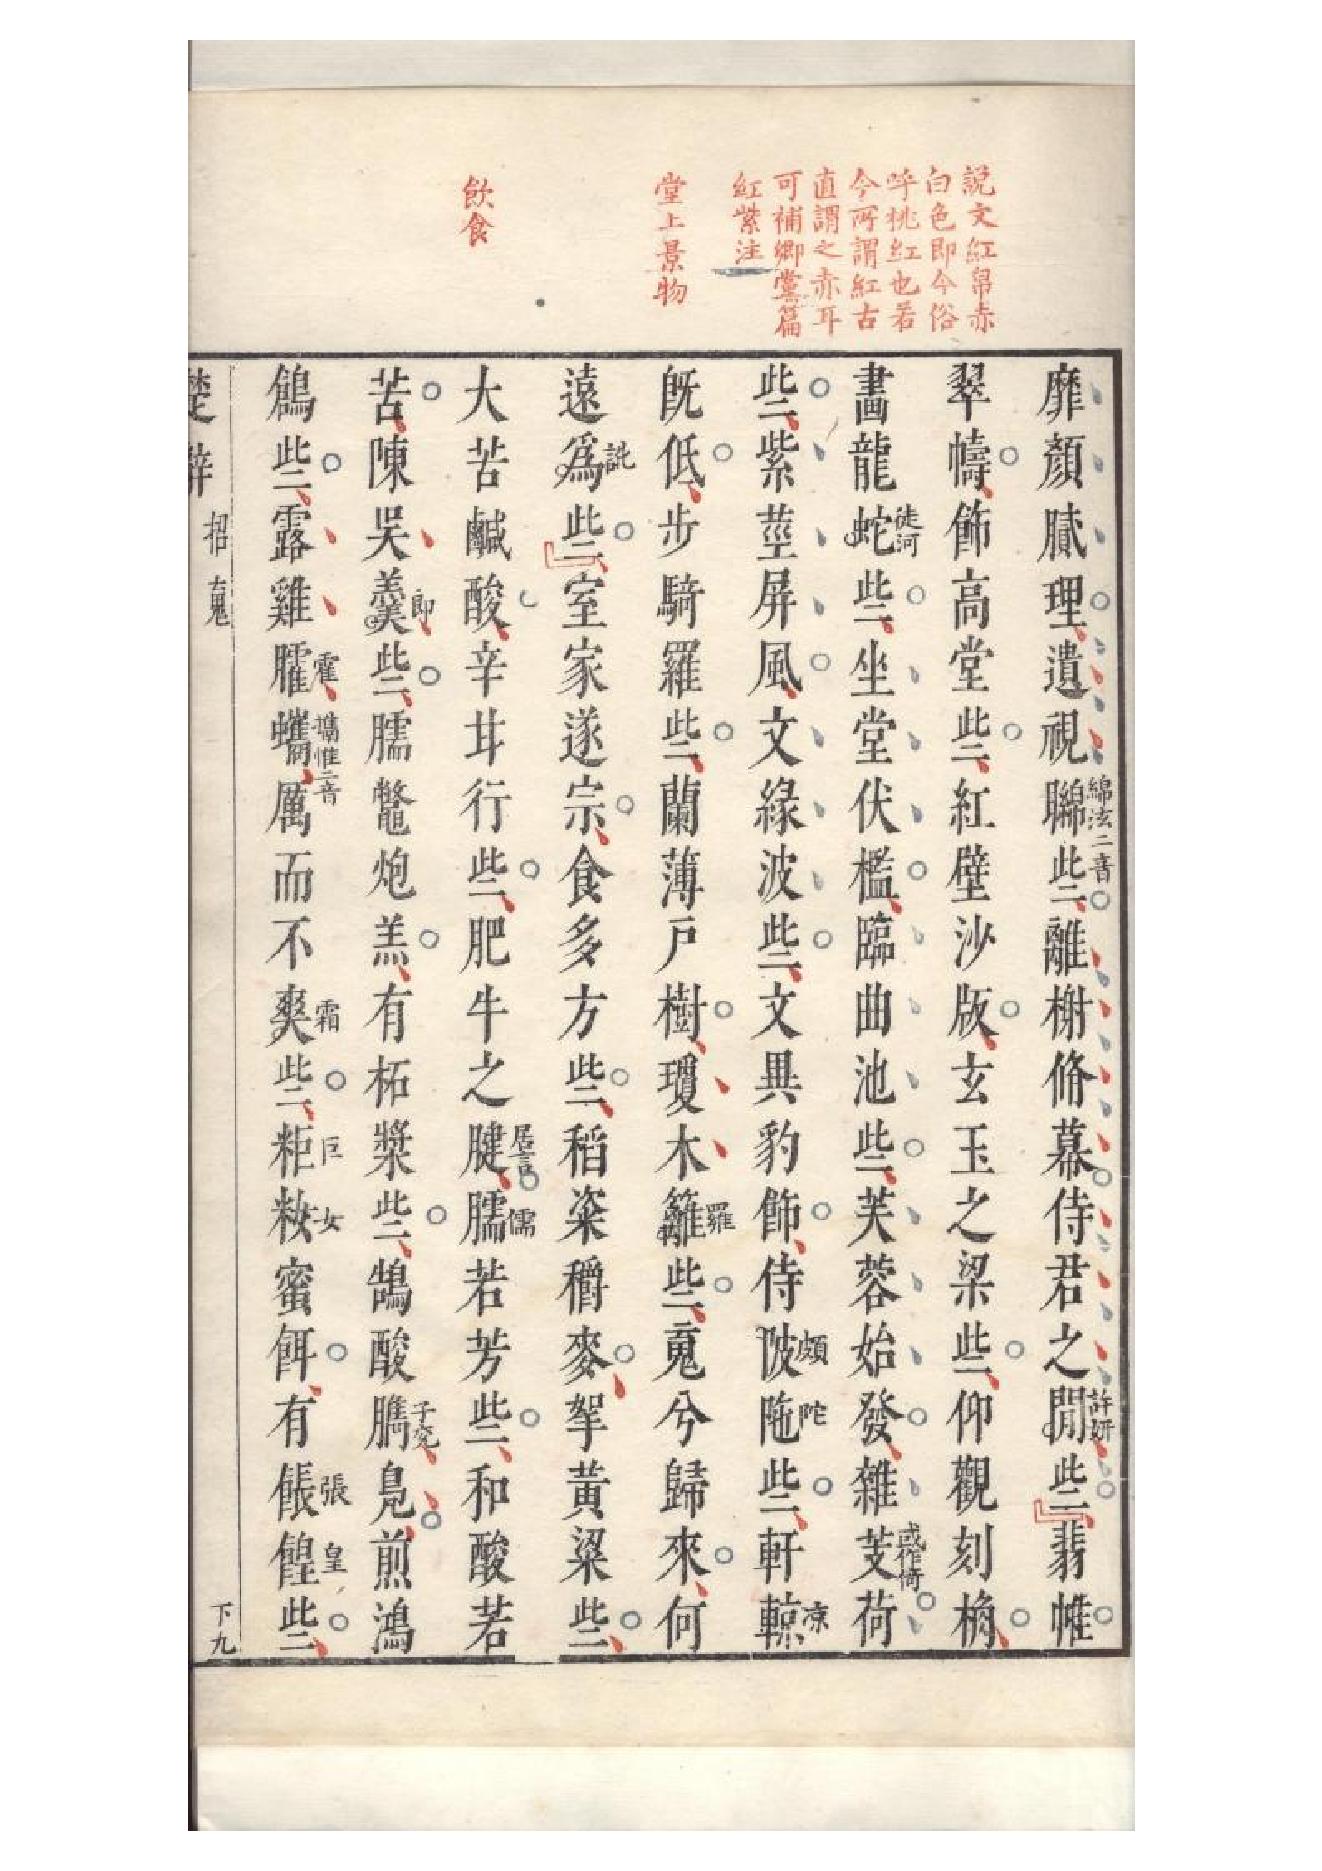 説文紅帛赤
白色即今俗
呼桃紅也若
今所謂紅古
直謂之赤耳
可補鄉黨篇
紅紫注
堂上景物
飲食
靡顏膩理遺視矊綿泫二音些離榭脩幕侍君之閒許妍些翡帷
翠幬飾高堂些紅壁沙版玄玉之梁些仰觀刻桷
畫龍蛇徒河些坐堂伏檻臨曲池些芙蓉始發雜芰或作倚荷
些紫莖屏風文緣波些文異豹飾侍陂頗陁陀些軒輬凉
既低步騎羅些蘭薄戶樹瓊木籬羅些䰟兮歸來何
遠爲訛些室家遂宗食多方些稻粢穱麥挐黃粱些
大苦鹹酸辛甘行些肥牛之腱居言臑儒若芳些和酸若
苦陳吳羹即些臑鼈炮羔有柘漿些鵠酸臇子兖鳧煎鴻
鶬些露雞臛霍蠵攜惟二音厲而不爽霜些粔巨籹女蜜餌有餦張餭皇些
楚辭 招䰟 下九